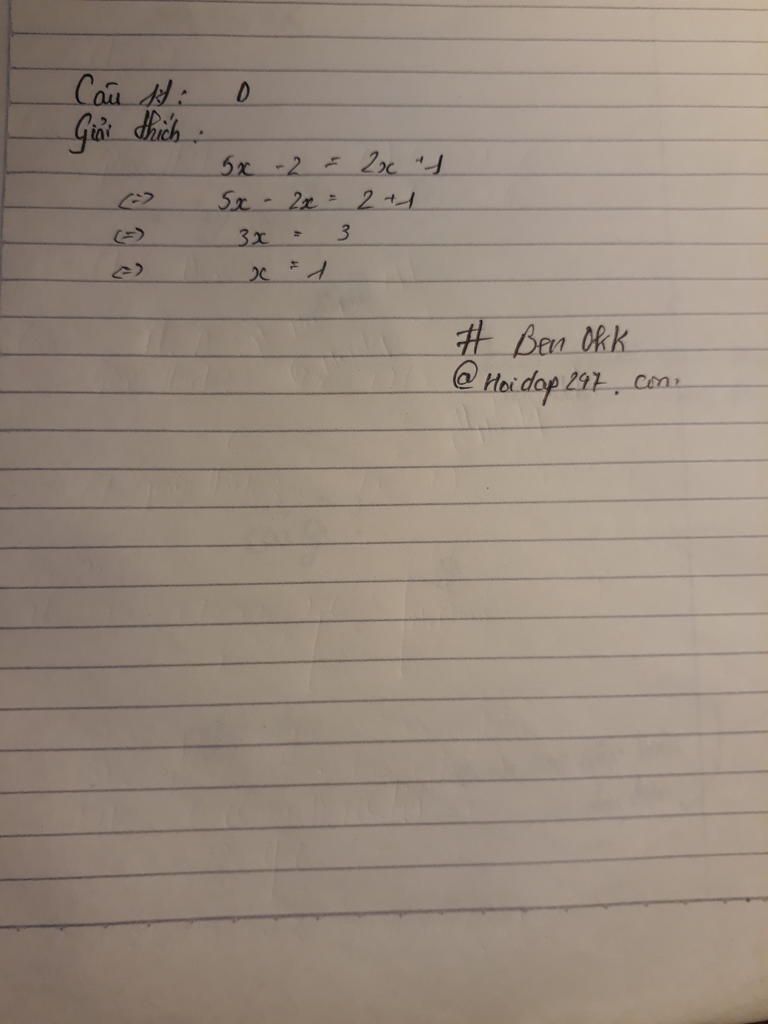 Câu 11: D
Giải thích:
5x - 2 = 2x + 1
<=> 5x - 2x = 2 + 1
<=> 3x = 3
<=> x = 1
# Ben
@Hoidap247.com